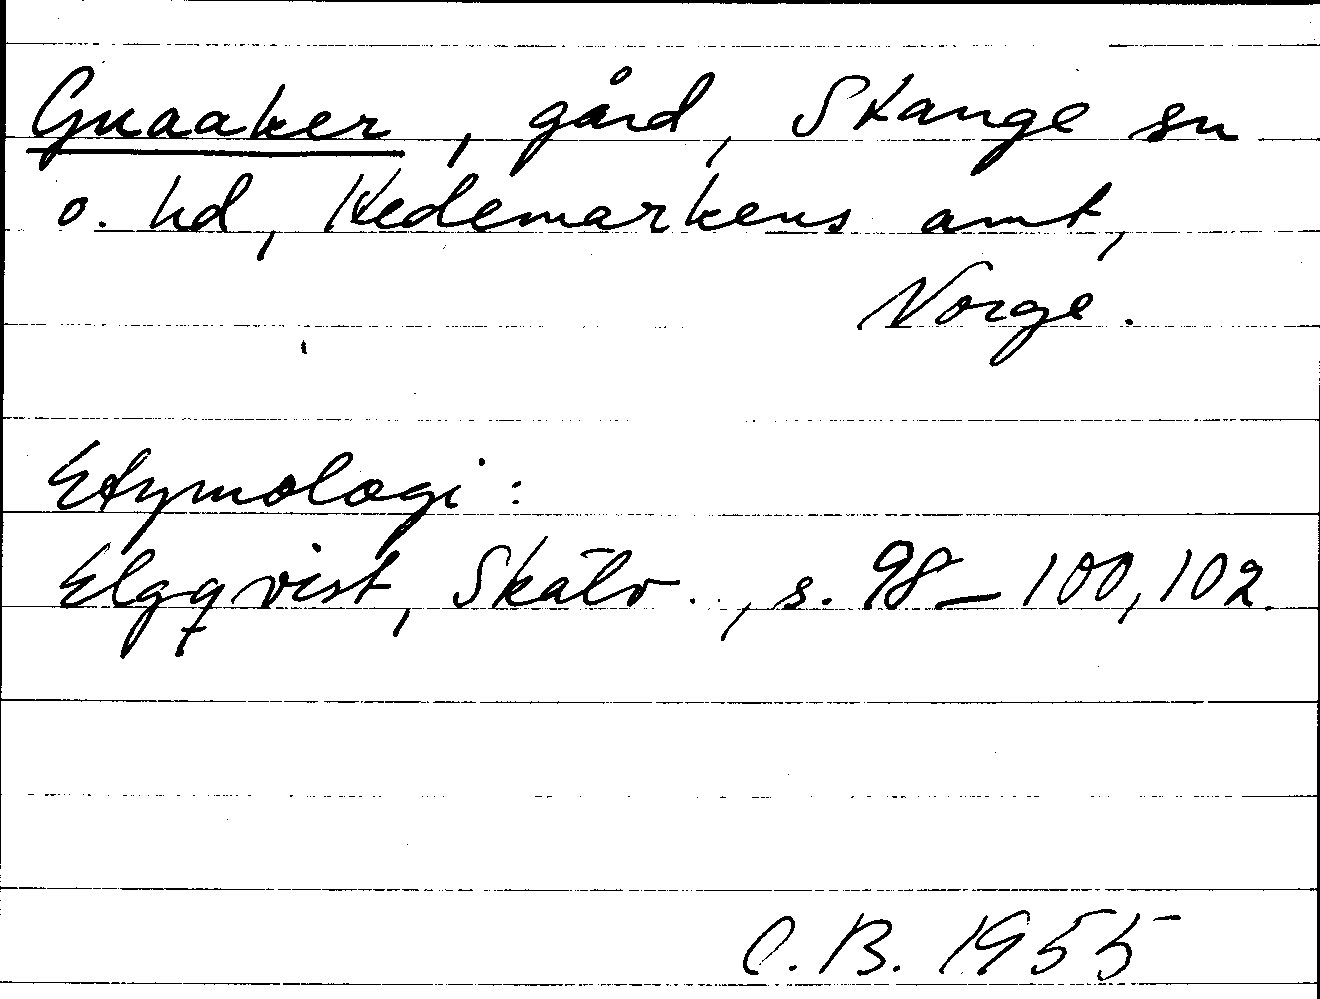 Gnaaker, gård, Stange sn
o. hd, Hedemarkens amt,
Norge.
Etymologi:
Elgqvist, Skälv., s. 98–100, 102.
C.B. 1955